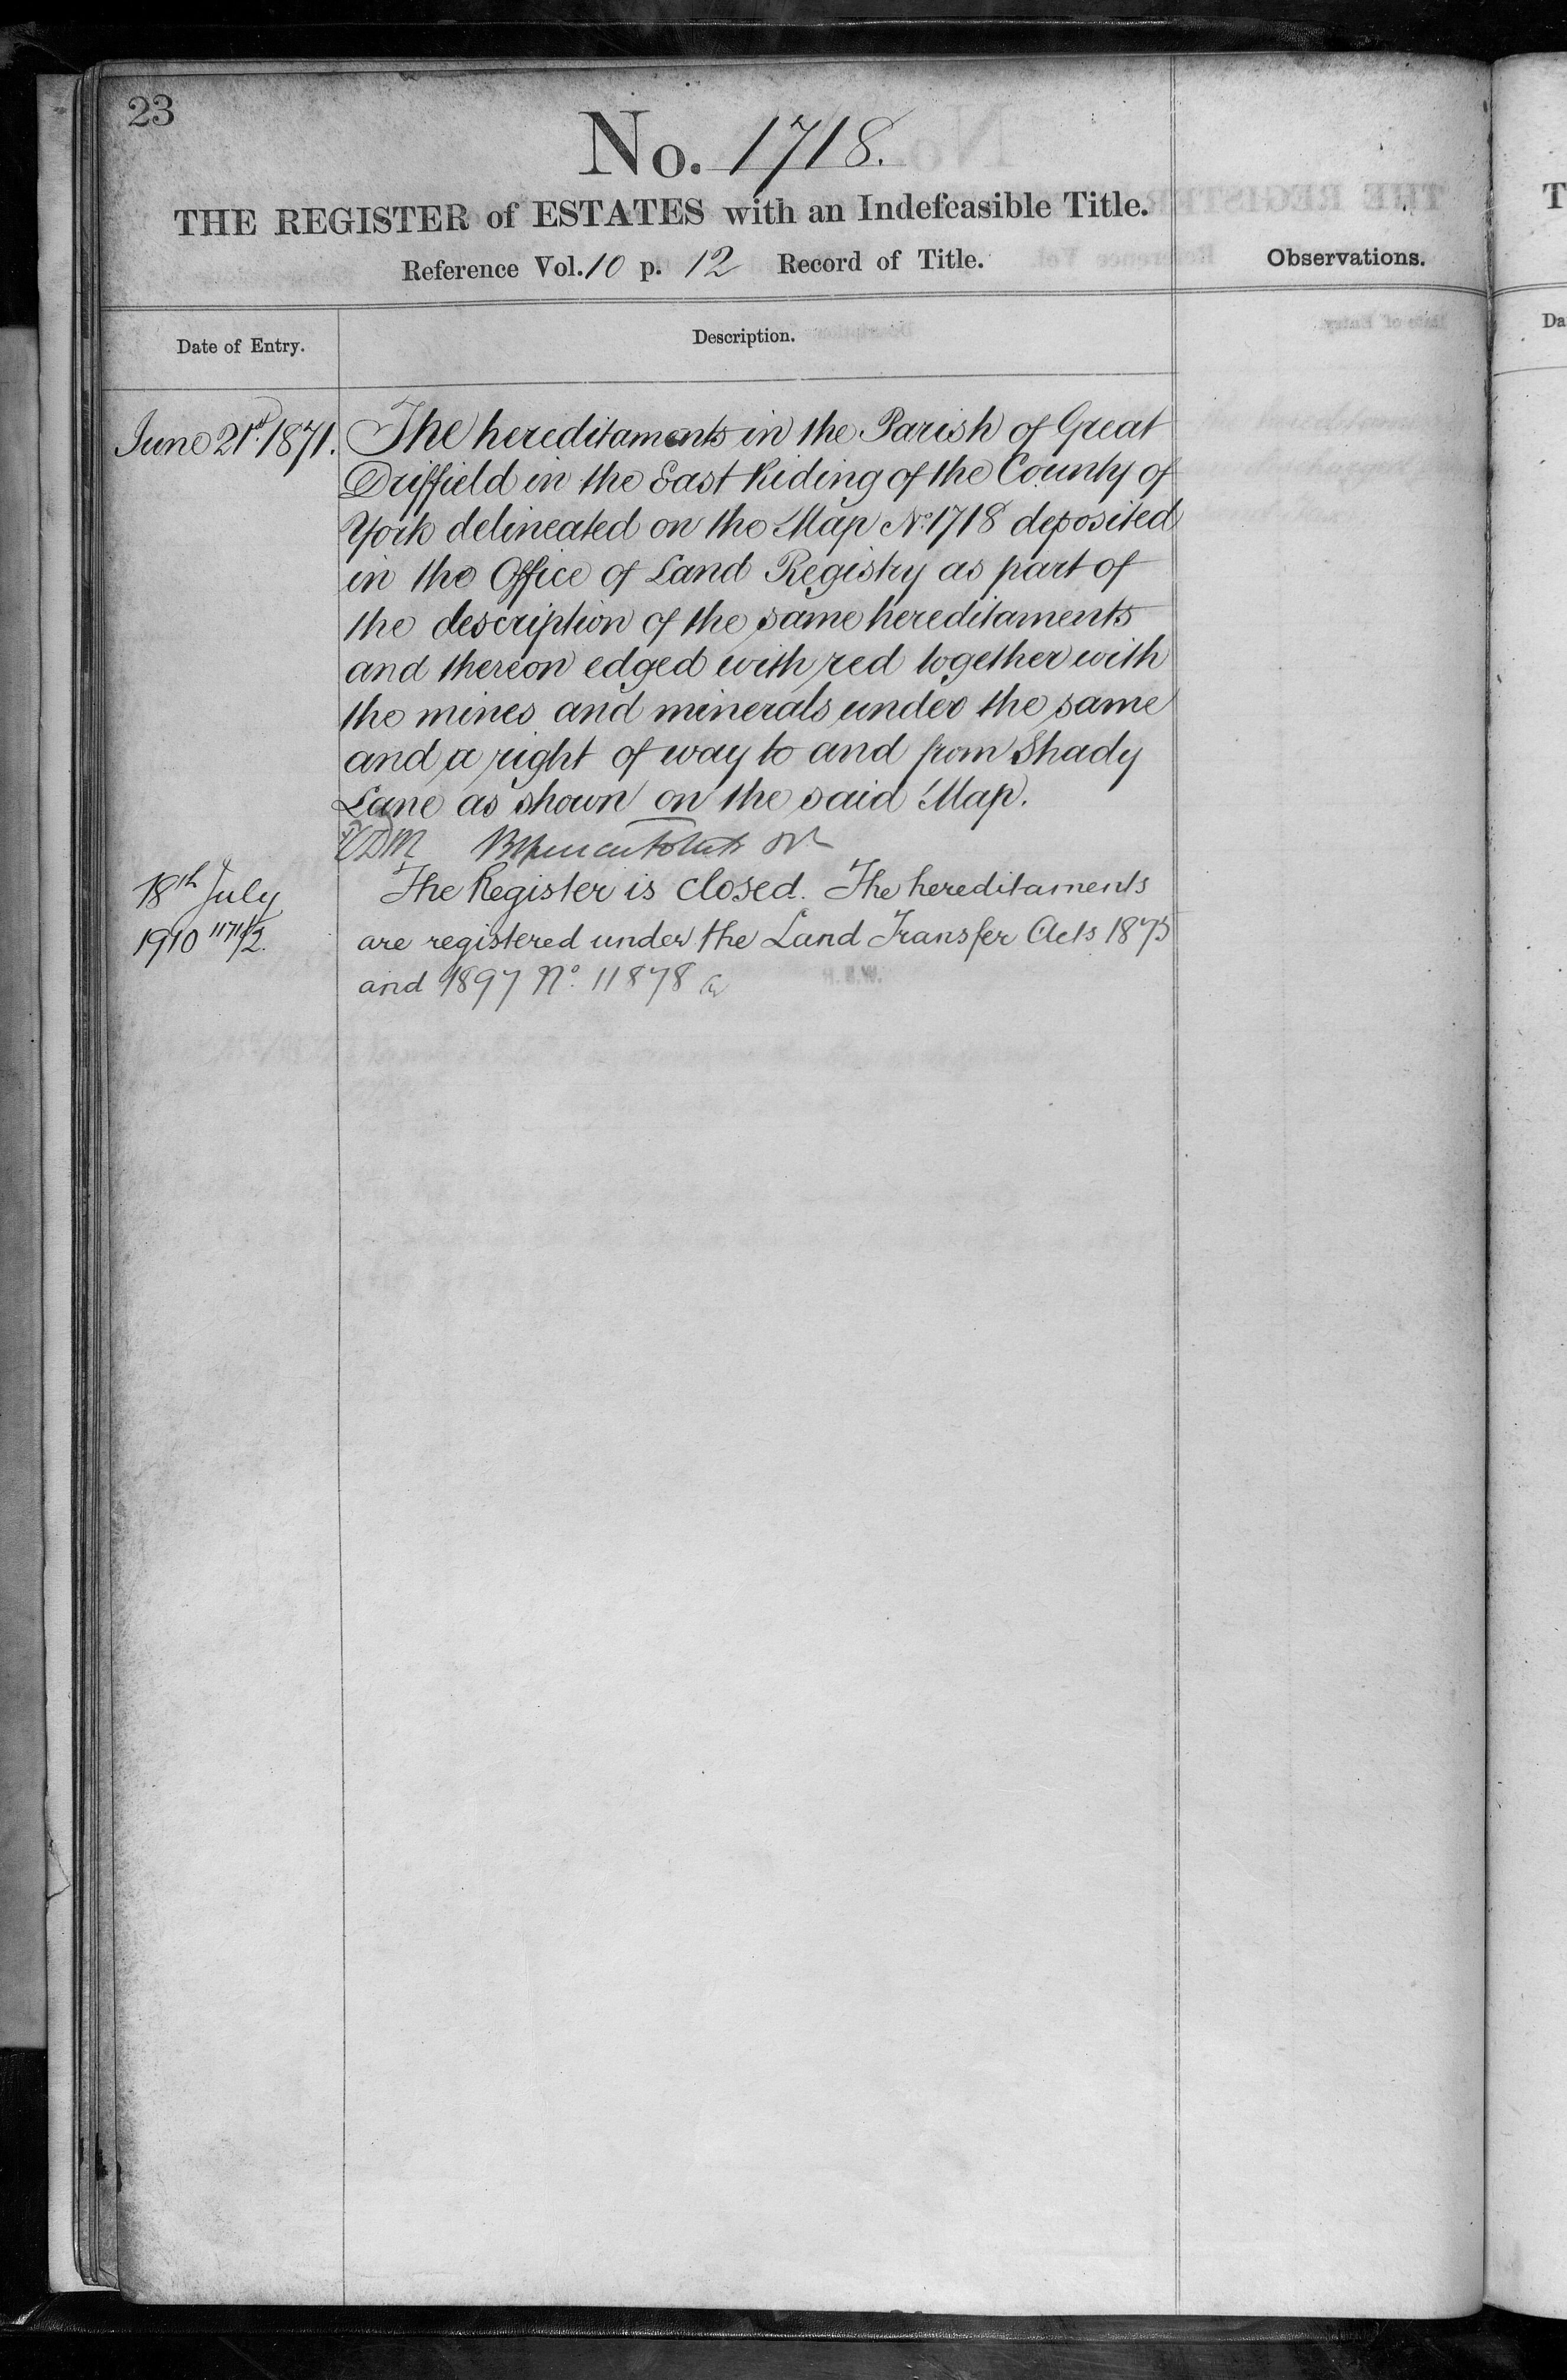 23
No. 1718.
THE REGISTER of ESTATES with an Indefeasible Title.
Reference Vol. 10 p. 12 Record of Title.
Observations.
Date of Entry.
Description.
June 21st 1871.
The hereditaments in the Parish of Great
Driffield in the East Riding of the County of
York delineated on the Map No 1718 deposited
in the Office of Land Registry as part of
the description of the same hereditaments
and thereon edged with red together with
the mines and minerals under the same
and a right of way to and from Shady
Lane as shown on the said Map.
18th July
1910
The Register is closed. The hereditaments
are registered under the Land Transfer Acts 1875
and 1897 No. 11878
T
Da